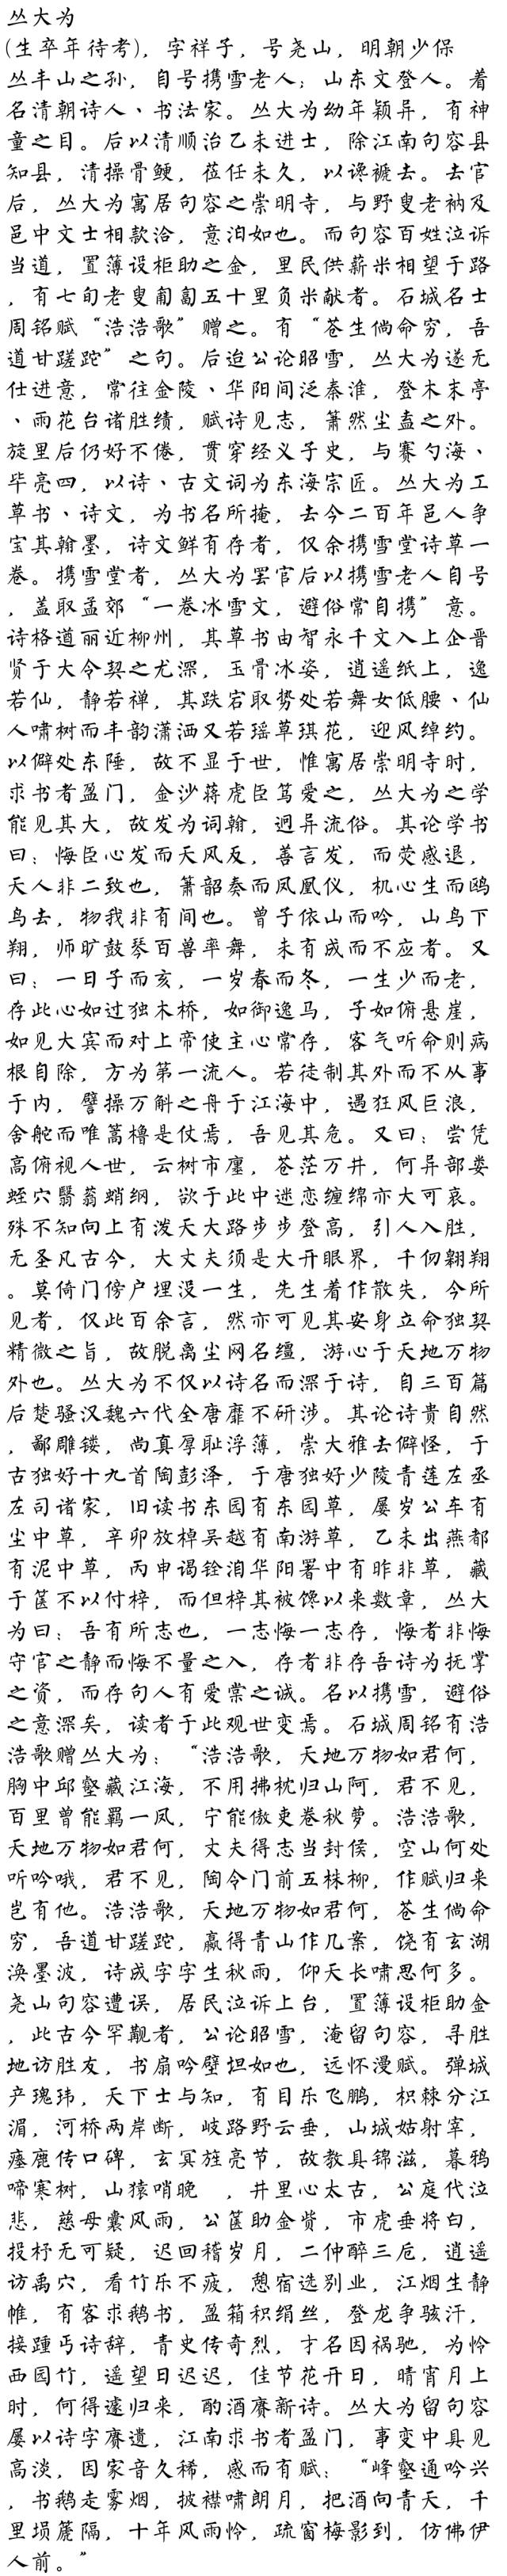 丛大为
(生卒年待考)，字祥子，号尧山，明朝少保
丛丰山之孙，自号携雪老人；山东文登人。着
名清朝诗人、书法家。丛大为幼年颖异，有神
童之目。后以清顺治乙未进士，除江南句容县
知县，清操骨鲠，莅任未久，以谗褫去。去官
后，丛大为寓居句容之崇明寺，与野叟老衲及
邑中文士相款洽，意泊如也。而句容百姓泣诉
当道，置薄设柜助之金，里民供薪米相望于路
，有七旬老叟匍匐五十里负米献者。石城名士
周铭赋“浩浩歌”赠之。有“苍生倘命穷，吾
道甘蹉跎”之句。后迨公论昭雪，丛大为遂无
仕进意，常往金陵、华阳间泛秦淮，登木末亭
、雨花台诸胜绩，赋诗见志，箫然尘盍之外。
旋里后仍好不倦，贯穿经义子史，与赛勺海、
毕亮四，以诗、古文词为东海宗匠。丛大为工
草书、诗文，为书名所掩，去今二百年邑人争
宝其翰墨，诗文鲜有存者，仅余携雪堂诗草一
卷。携雪堂者，丛大为罢官后以携雪老人自号
，盖取孟郊“一卷冰雪文，避俗常自携”意。
诗格遒丽近柳州，其草书由智永千文入上企晋
贤于大令契之尤深，玉骨冰姿，逍遥纸上，逸
若仙，静若禅，其跌宕取势处若舞女低腰、仙
人啸树而丰韵潇洒又若瑶草琪花，迎风绰约。
以僻处东陲，故不显于世，惟寓居崇明寺时，
求书者盈门，金沙蒋虎臣笃爱之，丛大为之学
能见其大，故发为词翰，迥异流俗。其论学书
曰：悔臣心发而天风反，善言发，而荧惑退，
天人非二致也，箫韶奏而凤凰仪，机心生而鸥
鸟去，物我非有间也。曾子依山而吟，山鸟下
翔，师旷鼓琴百兽率舞，未有成而不应者。又
曰：一日子而亥，一岁春而冬，一生少而老，
存此心如过独木桥，如御逸马，子如俯悬崖，
如见大宾而对上帝使主心常存，客气听命则病
根自除，方为第一流人。若徒制其外而不从事
于内，譬操万斛之舟于江海中，遇狂风巨浪，
舍舵而唯篙橹是仗焉，吾见其危。又曰：尝凭
高俯视人世，云树市廛，苍茫万井，何异部娄
蛭穴翳蓊蛸纲，欲于此中迷恋缠绵亦大可哀。
殊不知向上有泼天大路步步登高，引人入胜，
无圣凡古今，大丈夫须是大开眼界，千仞翱翔
。莫倚门傍户埋没一生，先生着作散失，今所
见者，仅此百余言，然亦可见其安身立命独契
精微之旨，故脱离尘网名缰，游心于天地万物
外也。丛大为不仅以诗名而深于诗，自三百篇
后楚骚汉魏六代全唐靡不研涉。其论诗贵自然
，鄙雕镂，尚真厚耻浮薄，崇大雅去僻怪，于
古独好十九首陶彭泽，于唐独好少陵青莲左丞
左司诸家，旧读书东园有东园草，屡岁公车有
尘中草，辛卯放棹吴越有南游草，乙未出燕都
有泥中草，丙申谒铨洎华阳署中有昨非草，藏
于箧不以付梓，而但梓其被馋以来数章，丛大
为曰：吾有所志也，一志悔一志存，悔者非悔
守官之静而悔不量之入，存者非存吾诗为抚掌
之资，而存句人有爱棠之诚。名以携雪，避俗
之意深矣，读者于此观世变焉。石城周铭有浩
浩歌赠丛大为：“浩浩歌，天地万物如君何，
胸中邱壑藏江海，不用拂枕归山阿，君不见，
百里曾能羁一凤，宁能傲吏卷秋萝。浩浩歌，
天地万物如君何，丈夫得志当封侯，空山何处
听吟哦，君不见，陶令门前五株柳，作赋归来
岂有他。浩浩歌，天地万物如君何，苍生倘命
穷，吾道甘蹉跎，赢得青山作几案，饶有玄湖
涣墨波，诗成字字生秋雨，仰天长啸思何多。
尧山句容遭误，居民泣诉上台，置薄设柜助金
，此古今罕觏者，公论昭雪，淹留句容，寻胜
地访胜友，书扇吟壁坦如也，远怀漫赋。弹城
产瑰玮，天下士与知，有目乐飞鹏，枳棘分江
湄，河桥两岸断，岐路野云垂，山城姑射宰，
瘗鹿传口碑，玄冥旌亮节，故教具锦滋，暮鸦
啼寒树，山猿哨晚　，井里心太古，公庭代泣
悲，慈母囊风雨，公箧助金赀，市虎垂将白，
投杼无可疑，迟回稽岁月，二仲醉三卮，逍遥
访禹穴，看竹乐不疲，憩宿选别业，江烟生静
帷，有客求鹅书，盈箱积绢丝，登龙争骇汗，
接踵丐诗辞，青史传奇烈，才名因祸驰，为怜
西园竹，遥望日迟迟，佳节花开日，晴宵月上
时，何得遽归来，酌酒赓新诗。丛大为留句容
屡以诗字赓遣，江南求书者盈门，事变中具见
高淡，因家音久稀，感而有赋：“峰壑通吟兴
，书鹅走雾烟，披襟啸朗月，把酒向青天，千
里埙篪隔，十年风雨怜，疏窗梅影到，仿佛伊
人前。”